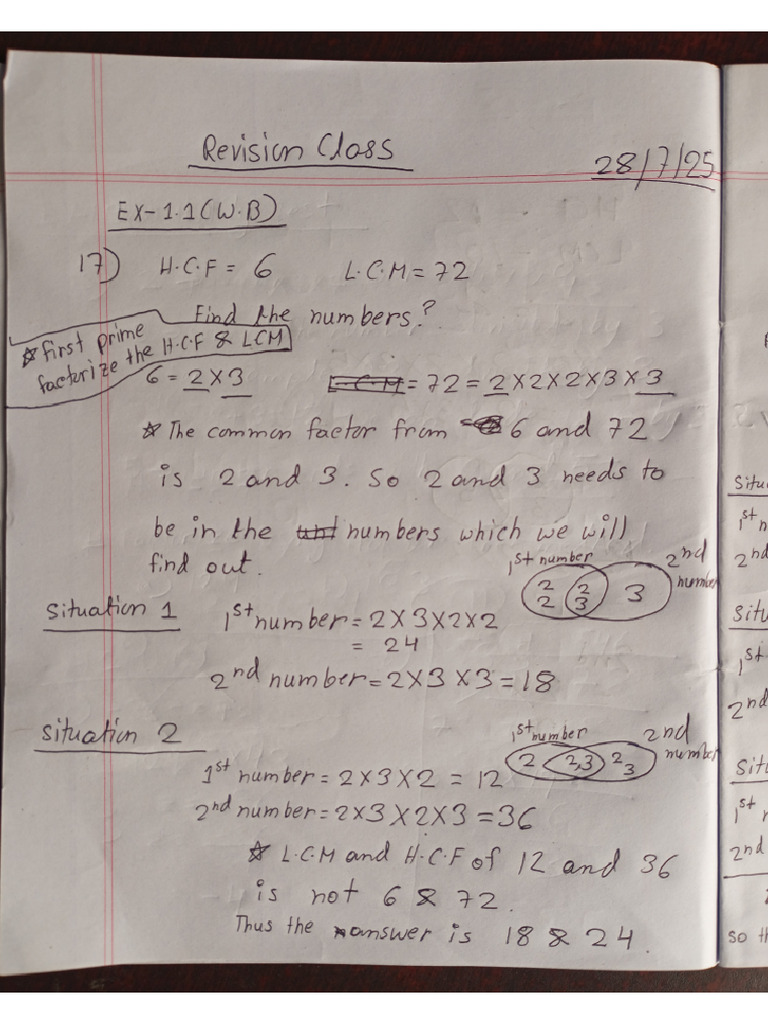 Revision Class
28/7/25
EX-1.1(W.B)
17) H.C.F = 6 L.C.M = 72
Find the numbers?
☆ first prime
factorize the H.C.F & LCM
6 = 2 × 3 = 72 = 2 × 2 × 2 × 3 × 3
☆ The common factor from 6 and 72
is 2 and 3. So 2 and 3 needs to
be in the numbers which we will
find out.
1st number 2nd number
2 2 2 3 3
Situation 1 1st number = 2 × 3 × 2 × 2
= 24
2nd number = 2 × 3 × 3 = 18
Situation 2
1st number 2nd number
2 2,3 2 3
1st number = 2 × 3 × 2 = 12
2nd number = 2 × 3 × 2 × 3 = 36
☆ L.C.M and H.C.F of 12 and 36
is not 6 & 72.
Thus the answer is 18 & 24.
1st
2nd
1st
2nd
1st
2nd